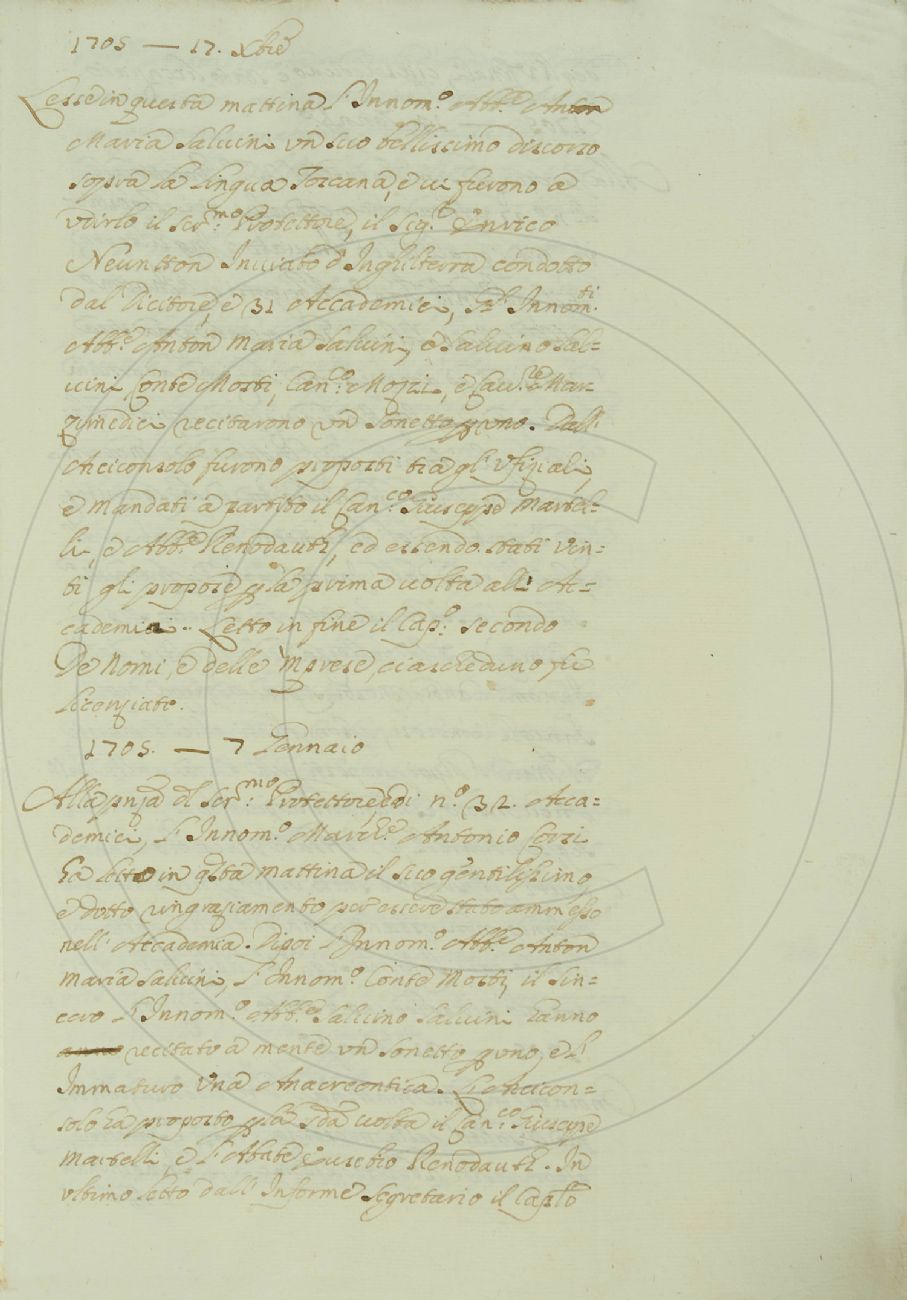 1705 — 17. Xbre
Lesse in questa mattina l'Innom.º Abb.e Anton
Maria Salvini un suo bellissimo discorso
sopra la lingua Toscana, e vi furono a
udirlo il Ser.mo Protettore, il Sig.r Enrico
Neuntton Inviato d'Inghilterra condotto
dal Dicitore, e 31 Accademici, Gl'Innom.ti
Abb.e Anton Maria Salvini, e Salvino Sal=
vini Conte Morti, Can.co Mozzi, e Cav.re Mar=
zimedici recitarono un sonetto p uno. Dall'
Arciconsolo furono proposti tra gl'Ufiziali,
e mandati a partito il Can.co Giuseppe Martel=
li, e Abb.e Renodauth, ed essendo stati vin=
ti gli propose p la prima volta all'Ac=
cademia. Letto in fine il Cap.º secondo
De Nomi, e delle imprese, ciascheduno fu
licenziato.
1705. — 7 Gennaio
Alla pnza del Ser.mo Protettore, e di n.º 32. Acca=
demici, l'Innom.º March.e Antonio Corsi
ha letto in qsta mattina il suo gentilissimo
e dotto ringraziamento per essere stato ammesso
nell'Accademia. Dipoi l'Innom.º Abb.e Anton
Maria Salvini, l'Innom.º Conte Morti, il Sin=
cero l'Innom.º Abb.e Salvino Salvini hanno
recitato a mente un sonetto p uno, e l'
Immaturo una Anacreontica. L'Arcicon=
solo ha proposto p la sda volta il Can.co Giuseppe
Martelli, e l'Abate Eusebio Renodauth. In
ultimo letto dall'Informe Segretario il Caplo